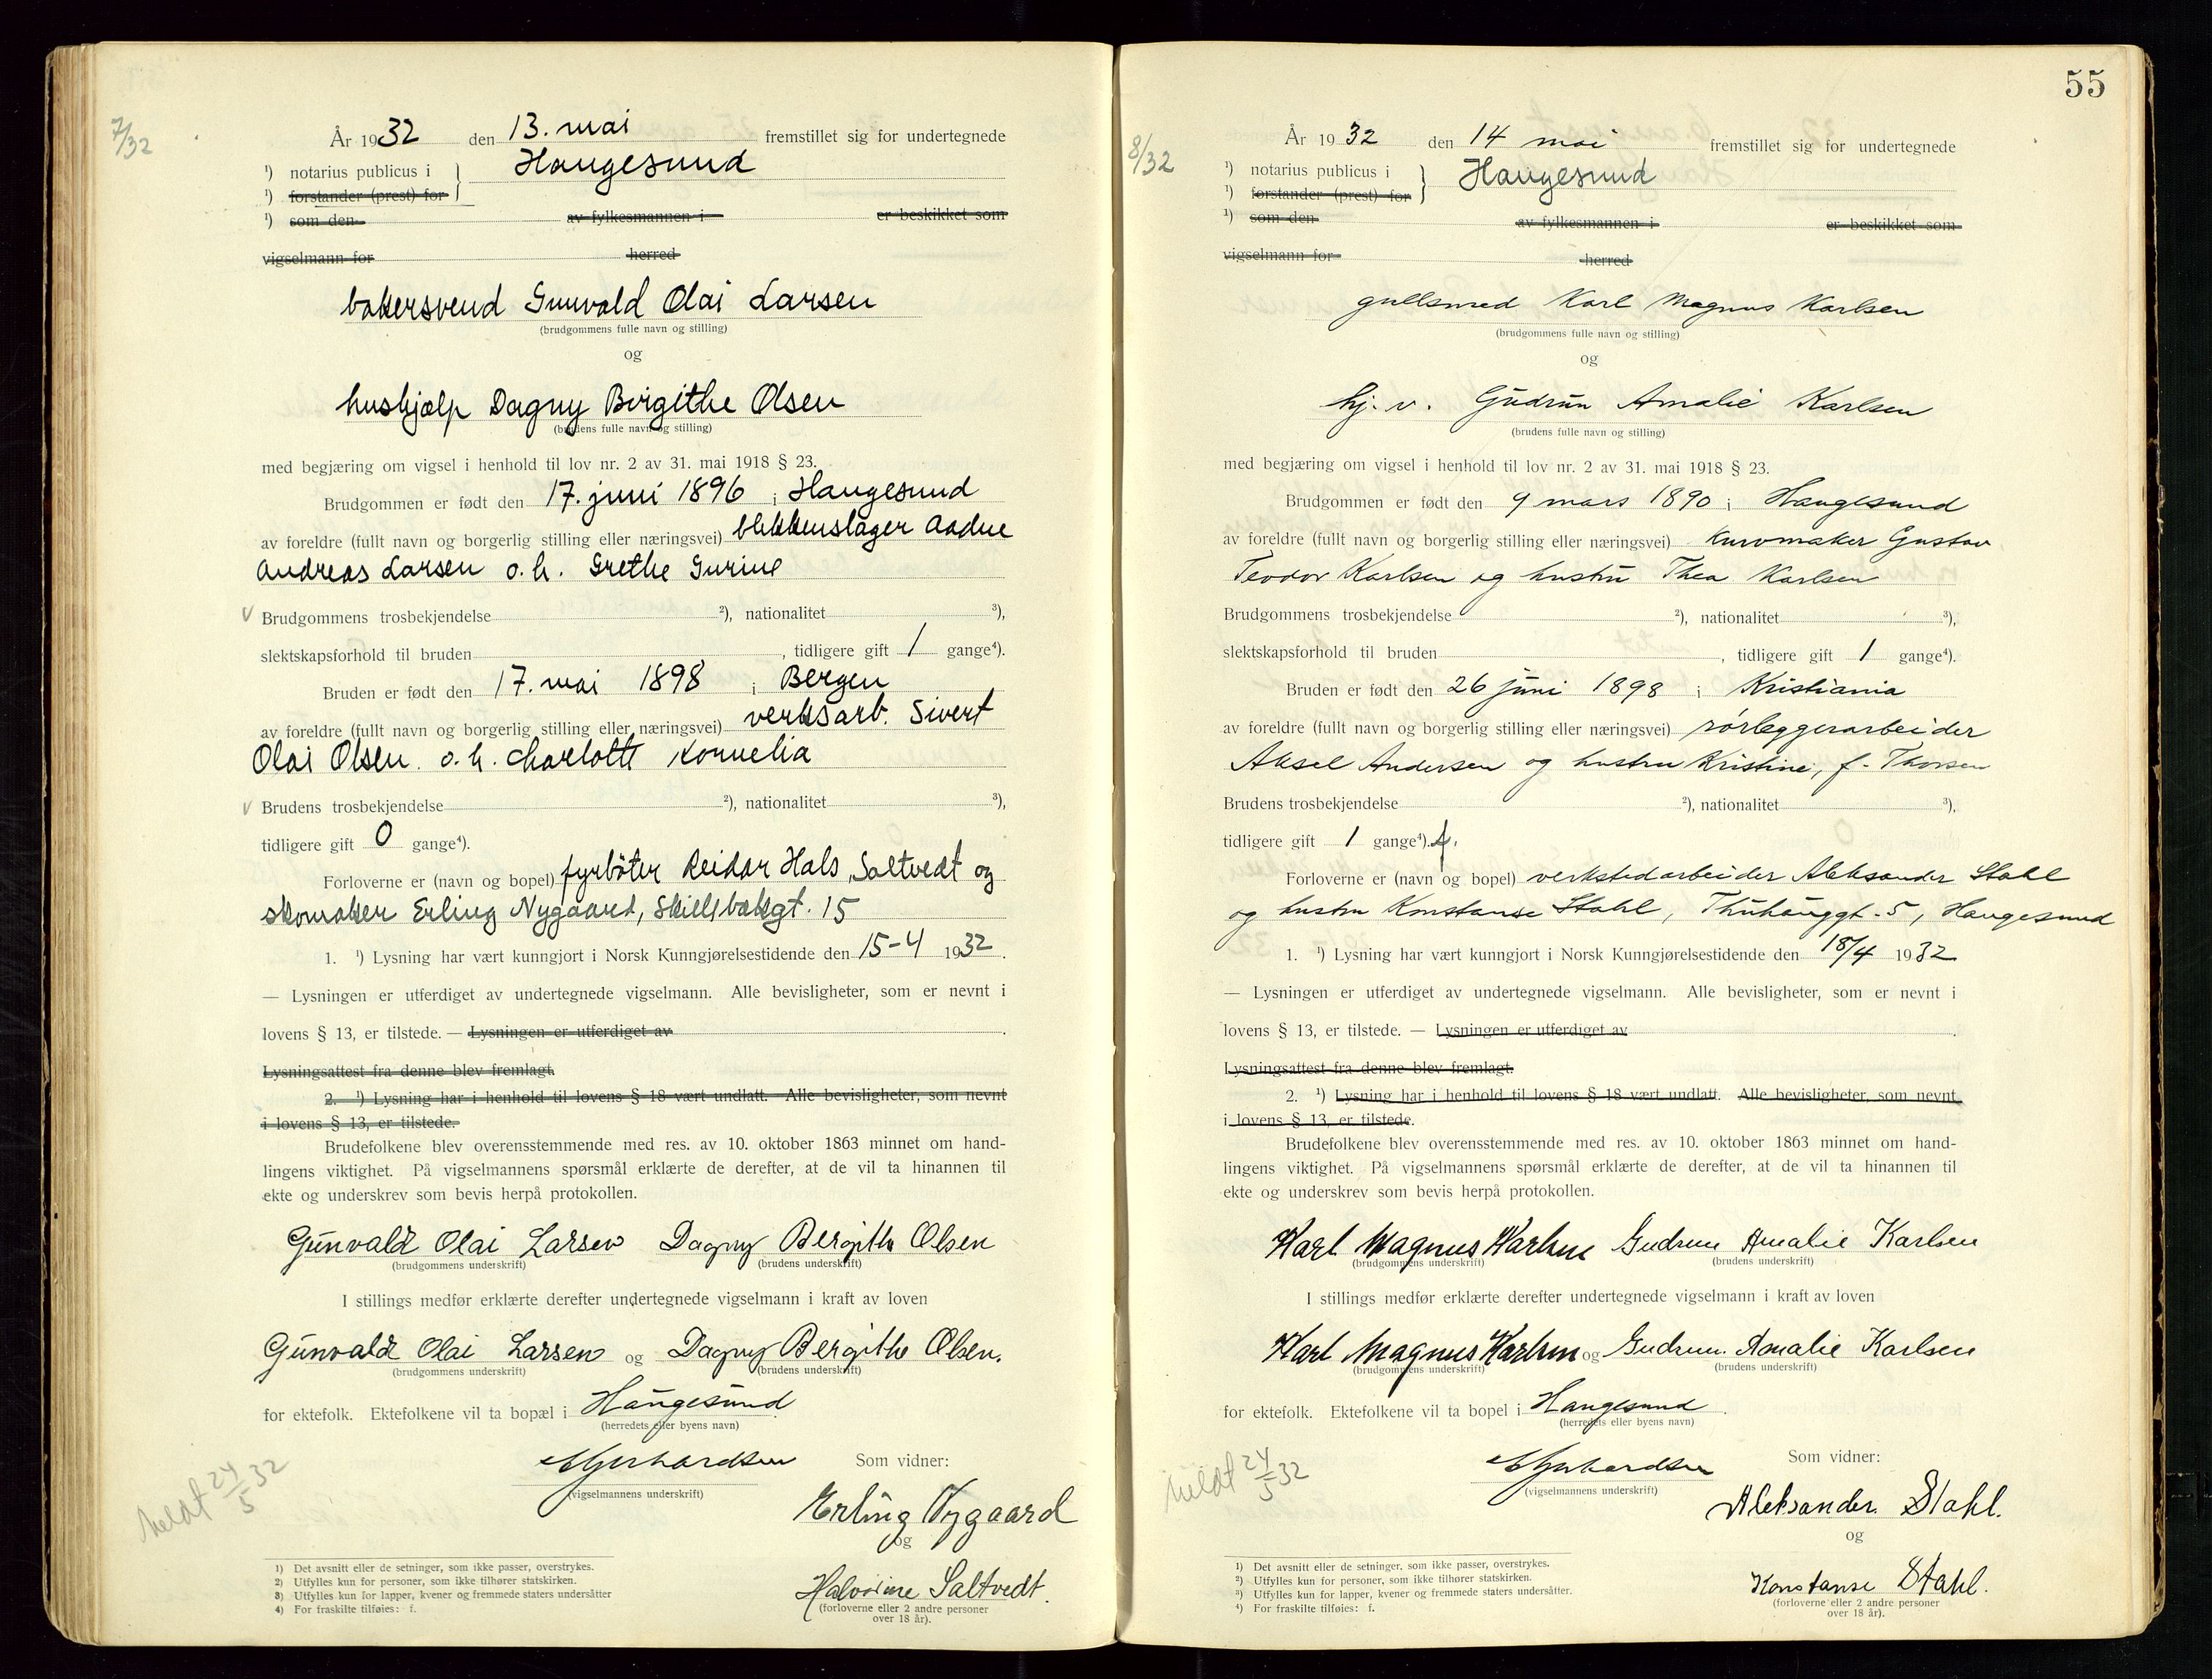 7/32
År 1932 den 13. mai fremstillet sig for undertegnede
¹) notarius publicus i } Haugesund
¹) forstander (prest) for
¹) som den av fylkesmannen i er beskikket som
vigselmann for herred
bakersvend Gunvald Olai Larsen
(brudgommens fulle navn og stilling)
og
hushjælp Dagny Birgithe Olsen
(brudens fulle navn og stilling)
med begjæring om vigsel i henhold til lov nr. 2 av 31. mai 1918 § 23.
Brudgommen er født den 17. juni 1896 i Haugesund
av foreldre (fullt navn og borgerlig stilling eller næringsvei) blikkenslager Aadne
Andreas Larsen o. h. Grethe Gurine
v Brudgommens trosbekjendelse ²), nationalitet ³),
slektskapsforhold til bruden , tidligere gift 1 gange⁴).
Bruden er født den 17. mai 1898 i Bergen
av foreldre (fullt navn og borgerlig stilling eller næringsvei) verksarb. Sivert
Olai Olsen o. h. Charlotte Kornelia
v Brudens trosbekjendelse ²), nationalitet ³),
tidligere gift 0 gange⁴).
Forloverne er (navn og bopel) fyrbøter Reidar Hals, Saltvedt og
skomaker Erling Nygaard, Skillebækgt. 15
1. ¹) Lysning har vært kunngjort i Norsk Kunngjørelsestidende den 15-4 1932.
— Lysningen er utferdiget av undertegnede vigselmann. Alle bevisligheter, som er nevnt i
lovens § 13, er tilstede. — Lysningen er utferdiget av .
Lysningsattest fra denne blev fremlagt.
2. ¹) Lysning har i henhold til lovens § 18 vært undlatt. Alle bevisligheter, som nevnt
i lovens § 13, er tilstede.
Brudefolkene blev overensstemmende med res. av 10. oktober 1863 minnet om hand-
lingens viktighet. På vigselmannens spørsmål erklærte de derefter, at de vil ta hinannen til
ekte og underskrev som bevis herpå protokollen.
Gunvald Olai Larsen Dagny Bergithe Olsen
(brudgommens underskrift) (brudens underskrift)
I stillings medfør erklærte derefter undertegnede vigselmann i kraft av loven
Gunvald Olai Larsen og Dagny Bergithe Olsen.
(brudgommens underskrift) (brudens underskrift)
for ektefolk. Ektefolkene vil ta bopæl i Haugesund
(herredets eller byens navn)
Gerhardsen Som vidner:
(vigselmannens underskrift)
meldt 24/5 32
Erling Nygaard
og
Halvorine Saltvedt.
(forloverne eller 2 andre personer
over 18 år).
1) Det avsnitt eller de setninger, som ikke passer, overstrykes.
2) Utfylles kun for personer, som ikke tilhører statskirken.
3) Utfylles kun for lapper, kvener og fremmede staters undersåtter
4) For fraskilte tilføies: f.
55
8/32
År 1932 den 14 mai fremstillet sig for undertegnede
¹) notarius publicus i } Haugesund
¹) forstander (prest) for
¹) som den av fylkesmannen i er beskikket som
vigselmann for herred
gullsmed Karl Magnus Karlsen
(brudgommens fulle navn og stilling)
og
hj. v. Gudrun Amalie Karlsen
(brudens fulle navn og stilling)
med begjæring om vigsel i henhold til lov nr. 2 av 31. mai 1918 § 23.
Brudgommen er født den 9 mars 1890 i Haugesund
av foreldre (fullt navn og borgerlig stilling eller næringsvei) kurvmaker Gustav
Teodor Karlsen og hustru Thea Karlsen
Brudgommens trosbekjendelse ²), nationalitet ³),
slektskapsforhold til bruden , tidligere gift 1 gange⁴).
Bruden er født den 26 juni 1898 i Kristiania
av foreldre (fullt navn og borgerlig stilling eller næringsvei) rørleggerarbeider
Aksel Andersen og hustru Kristine, f. Thorsen
Brudens trosbekjendelse ²), nationalitet ³),
tidligere gift 1 gange⁴). f.
Forloverne er (navn og bopel) verkstedarbeider Aleksander Stahl
og hustru Konstanse Stahl, Thuhauggt. 5, Haugesund
1. ¹) Lysning har vært kunngjort i Norsk Kunngjørelsestidende den 18/4 1932
— Lysningen er utferdiget av undertegnede vigselmann. Alle bevisligheter, som er nevnt i
lovens § 13, er tilstede. — Lysningen er utferdiget av .
Lysningsattest fra denne blev fremlagt.
2. ¹) Lysning har i henhold til lovens § 18 vært undlatt. Alle bevisligheter, som nevnt
i lovens § 13, er tilstede.
Brudefolkene blev overensstemmende med res. av 10. oktober 1863 minnet om hand-
lingens viktighet. På vigselmannens spørsmål erklærte de derefter, at de vil ta hinannen til
ekte og underskrev som bevis herpå protokollen.
Karl Magnus Karlsen Gudrun Amalie Karlsen
(brudgommens underskrift) (brudens underskrift)
I stillings medfør erklærte derefter undertegnede vigselmann i kraft av loven
Karl Magnus Karlsen og Gudrun Amalie Karlsen
(brudgommens underskrift) (brudens underskrift)
for ektefolk. Ektefolkene vil ta bopel i Haugesund .
(herredets eller byens navn)
Gerhardsen Som vidner:
(vigselmannens underskrift)
meldt 24/5 32
Aleksander Stahl.
og
Konstanse Stahl.
(forloverne eller 2 andre personer
over 18 år).
1) Det avsnitt eller de setninger, som ikke passer, overstrykes.
2) Utfylles kun for personer, som ikke tilhører statskirken.
3) Utfylles kun for lapper, kvener og fremmede staters undersåtter.
4) For fraskilte tilføies: f.